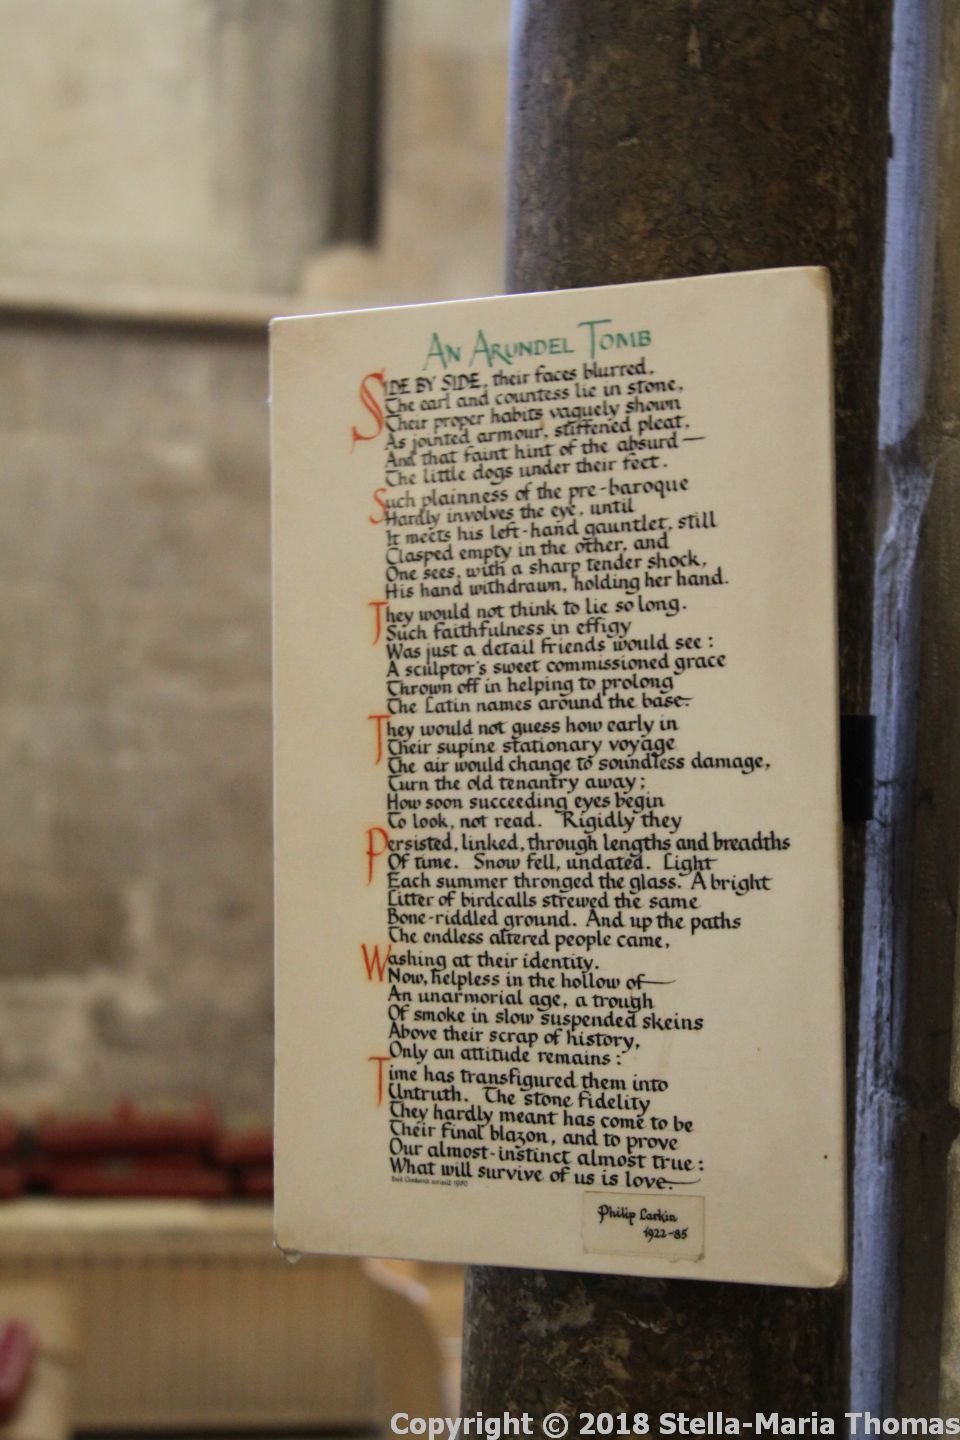 AN ARUNDEL TOMB
SIDE BY SIDE, their faces blurred,
The earl and countess lie in stone,
Their proper habits vaguely shown
As jointed armour, stiffened pleat,
And that faint hint of the absurd—
The little dogs under their feet.
Such plainness of the pre-baroque
Hardly involves the eye, until
It meets his left-hand gauntlet, still
Clasped empty in the other, and
One sees, with a sharp tender shock,
His hand withdrawn, holding her hand.
They would not think to lie so long.
Such faithfulness in effigy
Was just a detail friends would see:
A sculptor's sweet commissioned grace
Thrown off in helping to prolong
The Latin names around the base.
They would not guess how early in
Their supine stationary voyage
The air would change to soundless damage,
Turn the old tenantry away;
How soon succeeding eyes begin
To look, not read. Rigidly they
Persisted, linked, through lengths and breadths
Of time. Snow fell, undated. Light
Each summer thronged the glass. A bright
Litter of birdcalls strewed the same
Bone-riddled ground. And up the paths
The endless altered people came,
Washing at their identity.
Now, helpless in the hollow of
An unarmorial age, a trough
Of smoke in slow suspended skeins
Above their scrap of history,
Only an attitude remains:
Time has transfigured them into
Untruth. The stone fidelity
They hardly meant has come to be
Their final blazon, and to prove
Our almost-instinct almost true:
What will survive of us is love.
1980
Philip Larkin
1922-85
Copyright © 2018 Stella-Maria Thomas